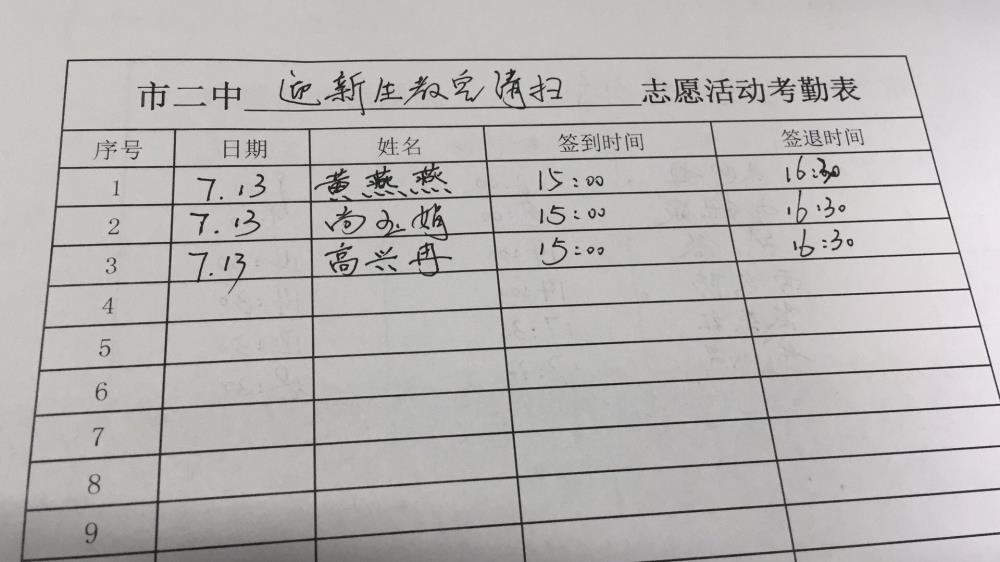 市二中 迎新生教室清扫 志愿活动考勤表
序号 日期 姓名 签到时间 签退时间
1 7.13 黄燕燕 15:00 16:30
2 7.13 尚玉娟 15:00 16:30
3 7.13 高兴冉 15:00 16:30
4
5
6
7
8
9